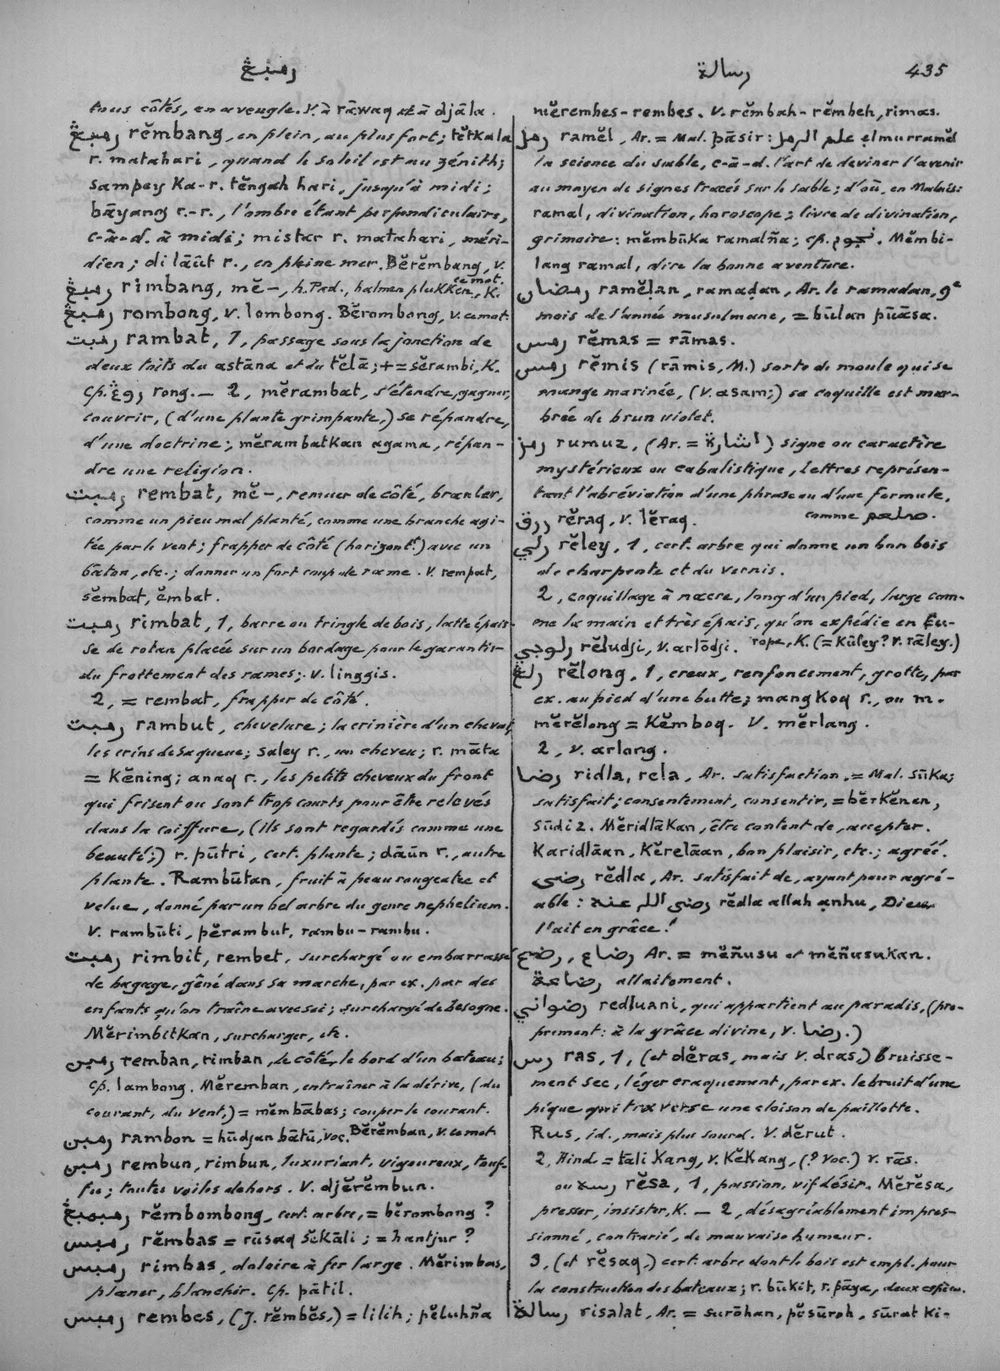 رمبڠ
رسالة
435
tous côtés, en aveugle. V. à rāwaq et à djāla.
رمبڠ rĕmbang, en plein, au plus fort; tĕtkala
r. matahari, quand le soleil est au zénith;
sampey ka-r. tĕngah hari, jusqu'à midi;
bāyang r.-r., l'ombre étant perpendiculaire,
c-à-d. à midi; mistar r. matahari, méri-
dien; di lāūt r., en pleine mer. Bĕrĕmbang, v.
ce mot.
رمبڠ rimbang, mĕ-, h. Pad., halmen plukken, K.
رمبڠ rombong, v. lombong. Bĕrombong, v. ce mot.
رمبت rambat, 1, passage sous la jonction de
deux toits du astāna et du tĕlā; += sĕrambi, K.
Cp. روڠ rong. — 2, mĕrambat, s'étendre, gagner,
couvrir, (d'une plante grimpante,) se répandre,
d'une doctrine; mĕrambatkan agama, répan-
dre une religion.
رمبت rembat, mĕ-, remuer de côté, branler,
comme un pieu mal planté, comme une branche agi-
tée par le vent; frapper de côté (horizont.t) avec un
bâton, etc.; donner un fort coup de rame. V. rempat,
sĕmbat, ĕmbat.
رمبت rimbat, 1, barre ou tringle de bois, latte épais-
se de rotan placée sur un bordage pour le garantir
du frottement des rames; v. linggis.
2, = rembat, frapper de côté.
رمبت rambut, chevelure; la crinière d'un cheval,
les crins de sa queue; saley r., un cheveu; r. māta
= kĕning; anaq r., les petits cheveux du front
qui frisent ou sont trop courts pour être relevés
dans la coiffure, (ils sont regardés comme une
beauté;) r. pūtri, cert. plante; dāūn r., autre
plante. Rambūtan, fruit à peau rougeatre et
velue, donné par un bel arbre du genre nephelium.
V. rambūti, pĕrambut, rambu-rambu.
رمبت rimbit, rembet, surchargé ou embarrassé
de bagage, gêné dans sa marche, par ex. par des
enfants qu'on traîne avec soi; surchargé de besogne.
Mĕrimbitkan, surcharger, etc.
رمبن remban, rimban, le côté, le bord d'un bateau;
cp. lambong. Mĕremban, entraîner à la dérive, (du
courant, du vent,) = mĕmbābas; couper le courant.
Bĕrĕmban, v. ce mot.
رمبن rambon = hūdjan bātū, voc.
رمبن rembun, rimbun, luxuriant, vigoureux, touf-
fu; toutes voiles dehors. V. djĕrĕmbun.
رمبمبڠ rĕmbombong, cert. arbre, = bĕrombong?
رمبس rĕmbas = rūsaq sĕkāli; = hantjur?
رمبس rimbas, doloire à fer large. Mĕrimbas,
planer, blanchir. Cp. pātil.
رمبس rembes, (J. rĕmbĕs,) = lilih; pĕluhña
mĕrembes-rembes. V. rĕmbah-rĕmbeh, rimas.
رمل ramĕl, Ar. = Mal. pāsir: علم الرمل elmurramĕl
la science du sable, c-à-d. l'art de deviner l'avenir
au moyen de signes tracés sur le sable; d'où, en Malais:
ramal, divination, horoscope; livre de divination,
grimoire: mĕmbūka ramalña; cp. نجوم. Mĕmbi-
lang ramal, dire la bonne aventure.
رمضان ramĕḷan, ramaḍan, Ar. le ramadan, 9e
mois de l'année musulmane, = būlan pūāsa.
رمس rĕmas = rāmas.
رمس rĕmis (rāmis, M.) sorte de moule qui se
mange marinée, (v. asam;) sa coquille est mar-
brée de brun violet.
رمز rumuz, (Ar. = اشارة) signe ou caractère
mystérieux ou cabalistique, lettres représen-
tant l'abréviation d'une phrase ou d'une formule,
comme صلعم.
ررق rĕraq, v. lĕraq.
رلي rĕley, 1, cert. arbre qui donne un bon bois
de charpente et du vernis.
2, coquillage à nacre, long d'un pied, large com-
me la main et très épais, qu'on expédie en Eu-
rope, K. (= kūley? v. rāley.)
رلوجي rĕludji, v. arlōdji.
رلڠ rĕlong, 1, creux, renfoncement, grotte, par
ex. au pied d'une butte; mangkoq r., ou m.
mĕrĕlong = kĕmboq. V. mĕrlang.
2, v. arlong.
رضا ridla, rela, Ar. satisfaction, = Mal. sūka;
satisfait; consentement, consentir, = bĕrkĕnen,
sūdi 2. Mĕridlākan, être content de, accepter.
Karidlāan, kĕrelāan, bon plaisir, etc.; agréé.
رضى rĕdla, Ar. satisfait de, ayant pour agré-
able: رضى الله عنه rĕdla allah ạnhu, Dieu
l'ait en grâce!
رضاع, رضع Ar. = mĕñusu et mĕñusukan.
رضاعة allaitement.
رضواني redluani, qui appartient au paradis, (pro-
prement: à la grâce divine, v. رضا.)
رس ras, 1, (et dĕras, mais v. dras,) bruisse-
ment sec, léger craquement, par ex. le bruit d'une
pique qui traverse une cloison de paillotte.
Rus, id., mais plus sourd. V. dĕrut.
2, Hind. = tāli kang, v. kĕkang, (? voc.) v. rās.
ou رسه rĕsa, 1, passion, vif désir. Mĕrĕsa,
presser, insister, K. — 2, désagréablement impres-
sionné, contrarié, de mauvaise humeur.
3, (et rĕsaq,) cert. arbre dont le bois est empl. pour
la construction des bateaux; r. būkit, r. pāya, deux espèces.
رسالة risalat, Ar. = surōhan, pĕsūroh, sūrat ki-